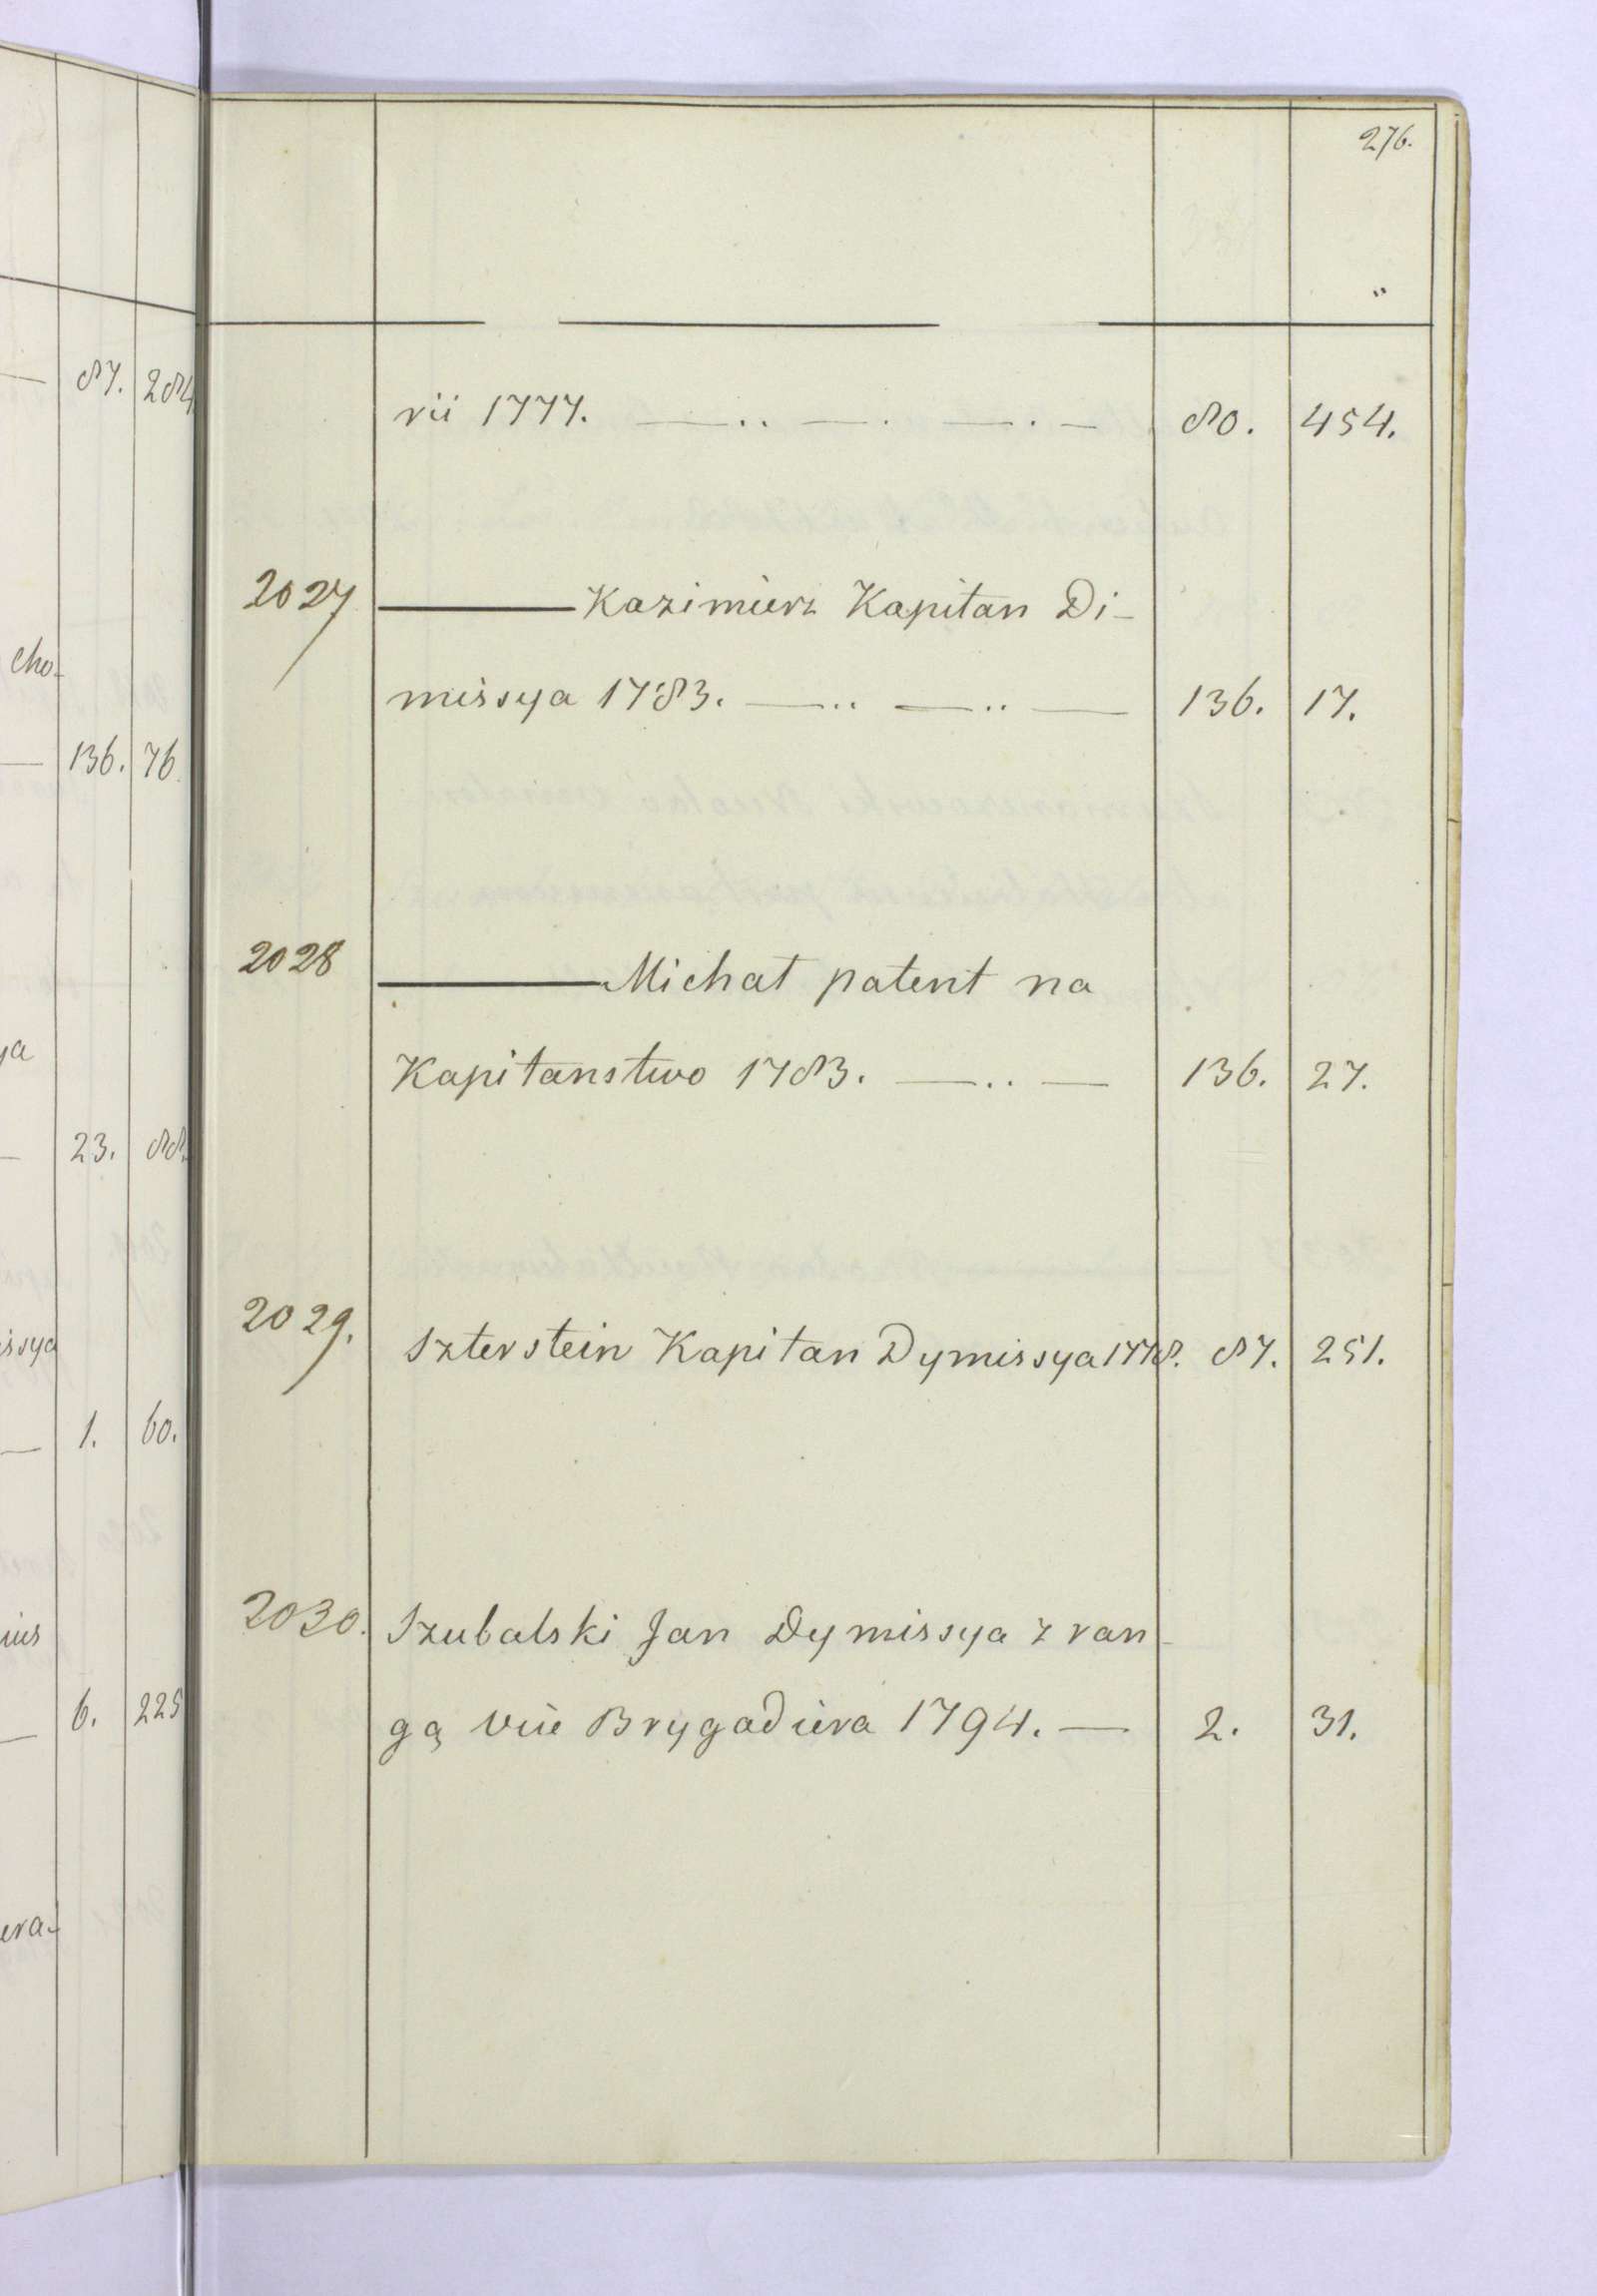 276.
"
rii 1777. —.. —. —. — 80. 454.
2027 ——— Kazimierz Kapitan Di-
missya 1783. —.. —.. — 136. 17.
2028 ——— Michał patent na
Kapitanstwo 1783. —.. — 136. 27.
2029. Szterstein Kapitan Dymissya 1778. 87. 251.
2030. Szubalski Jan Dymissya z ran-
gą vice Brygadiera 1794. — 2. 31.
87. 284
cho-
136. 76
ya
23. 88.
issya
1. 60.
6. 225
era-